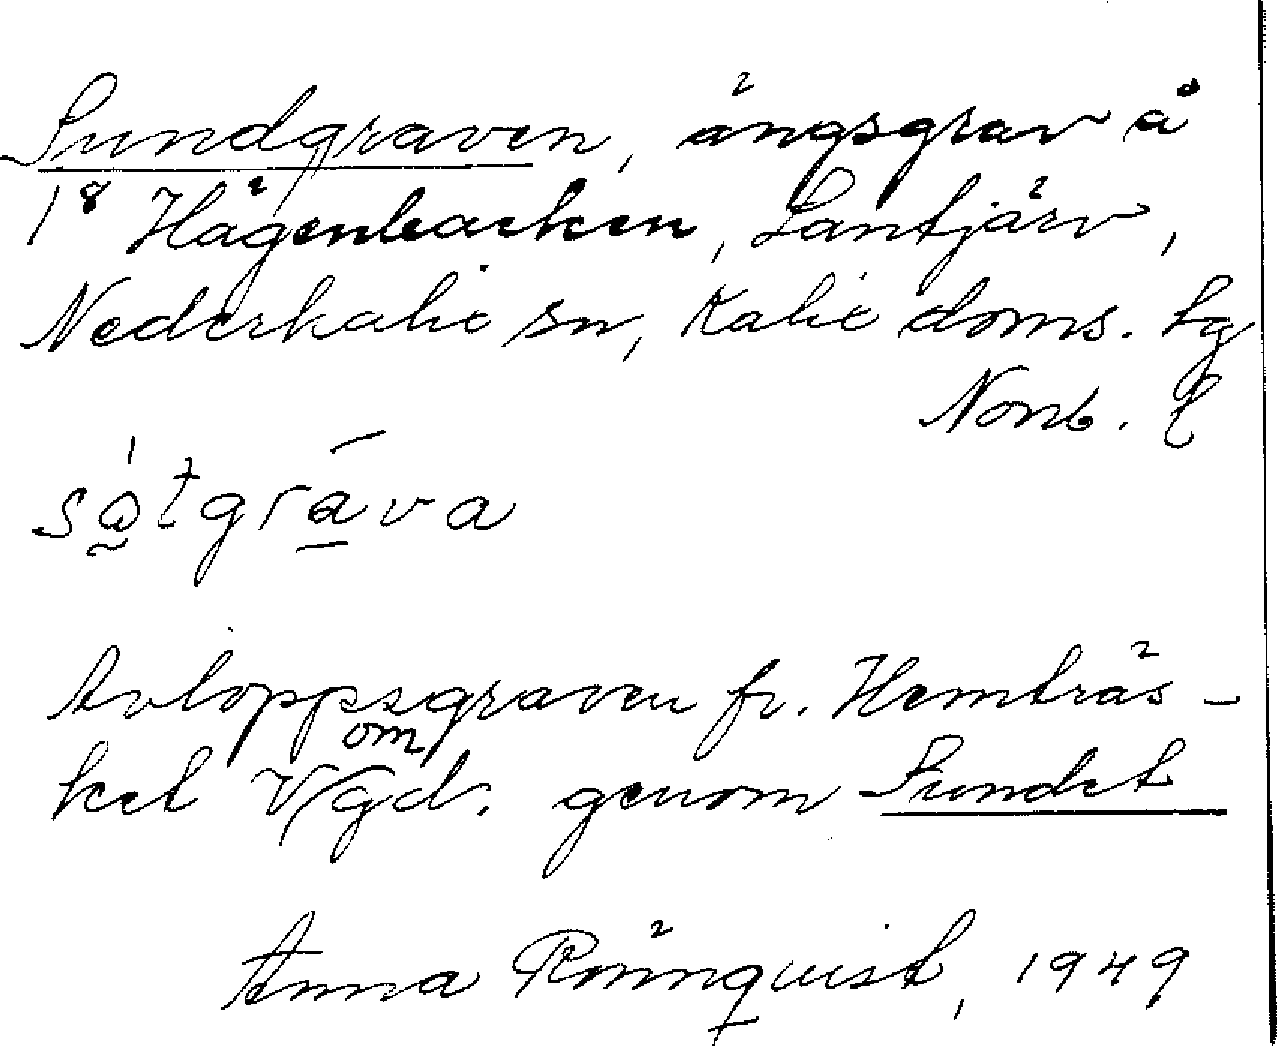 Sundgraven, ängsgrav å
1⁸ Hägenbacken, Lantjärv,
Nederkalix sn, Kalix doms. tg
Norrb. l
Avloppsgraven fr. Hemträs-
ket V om gd. genom Sundet
Anna Rönnquist, 1949